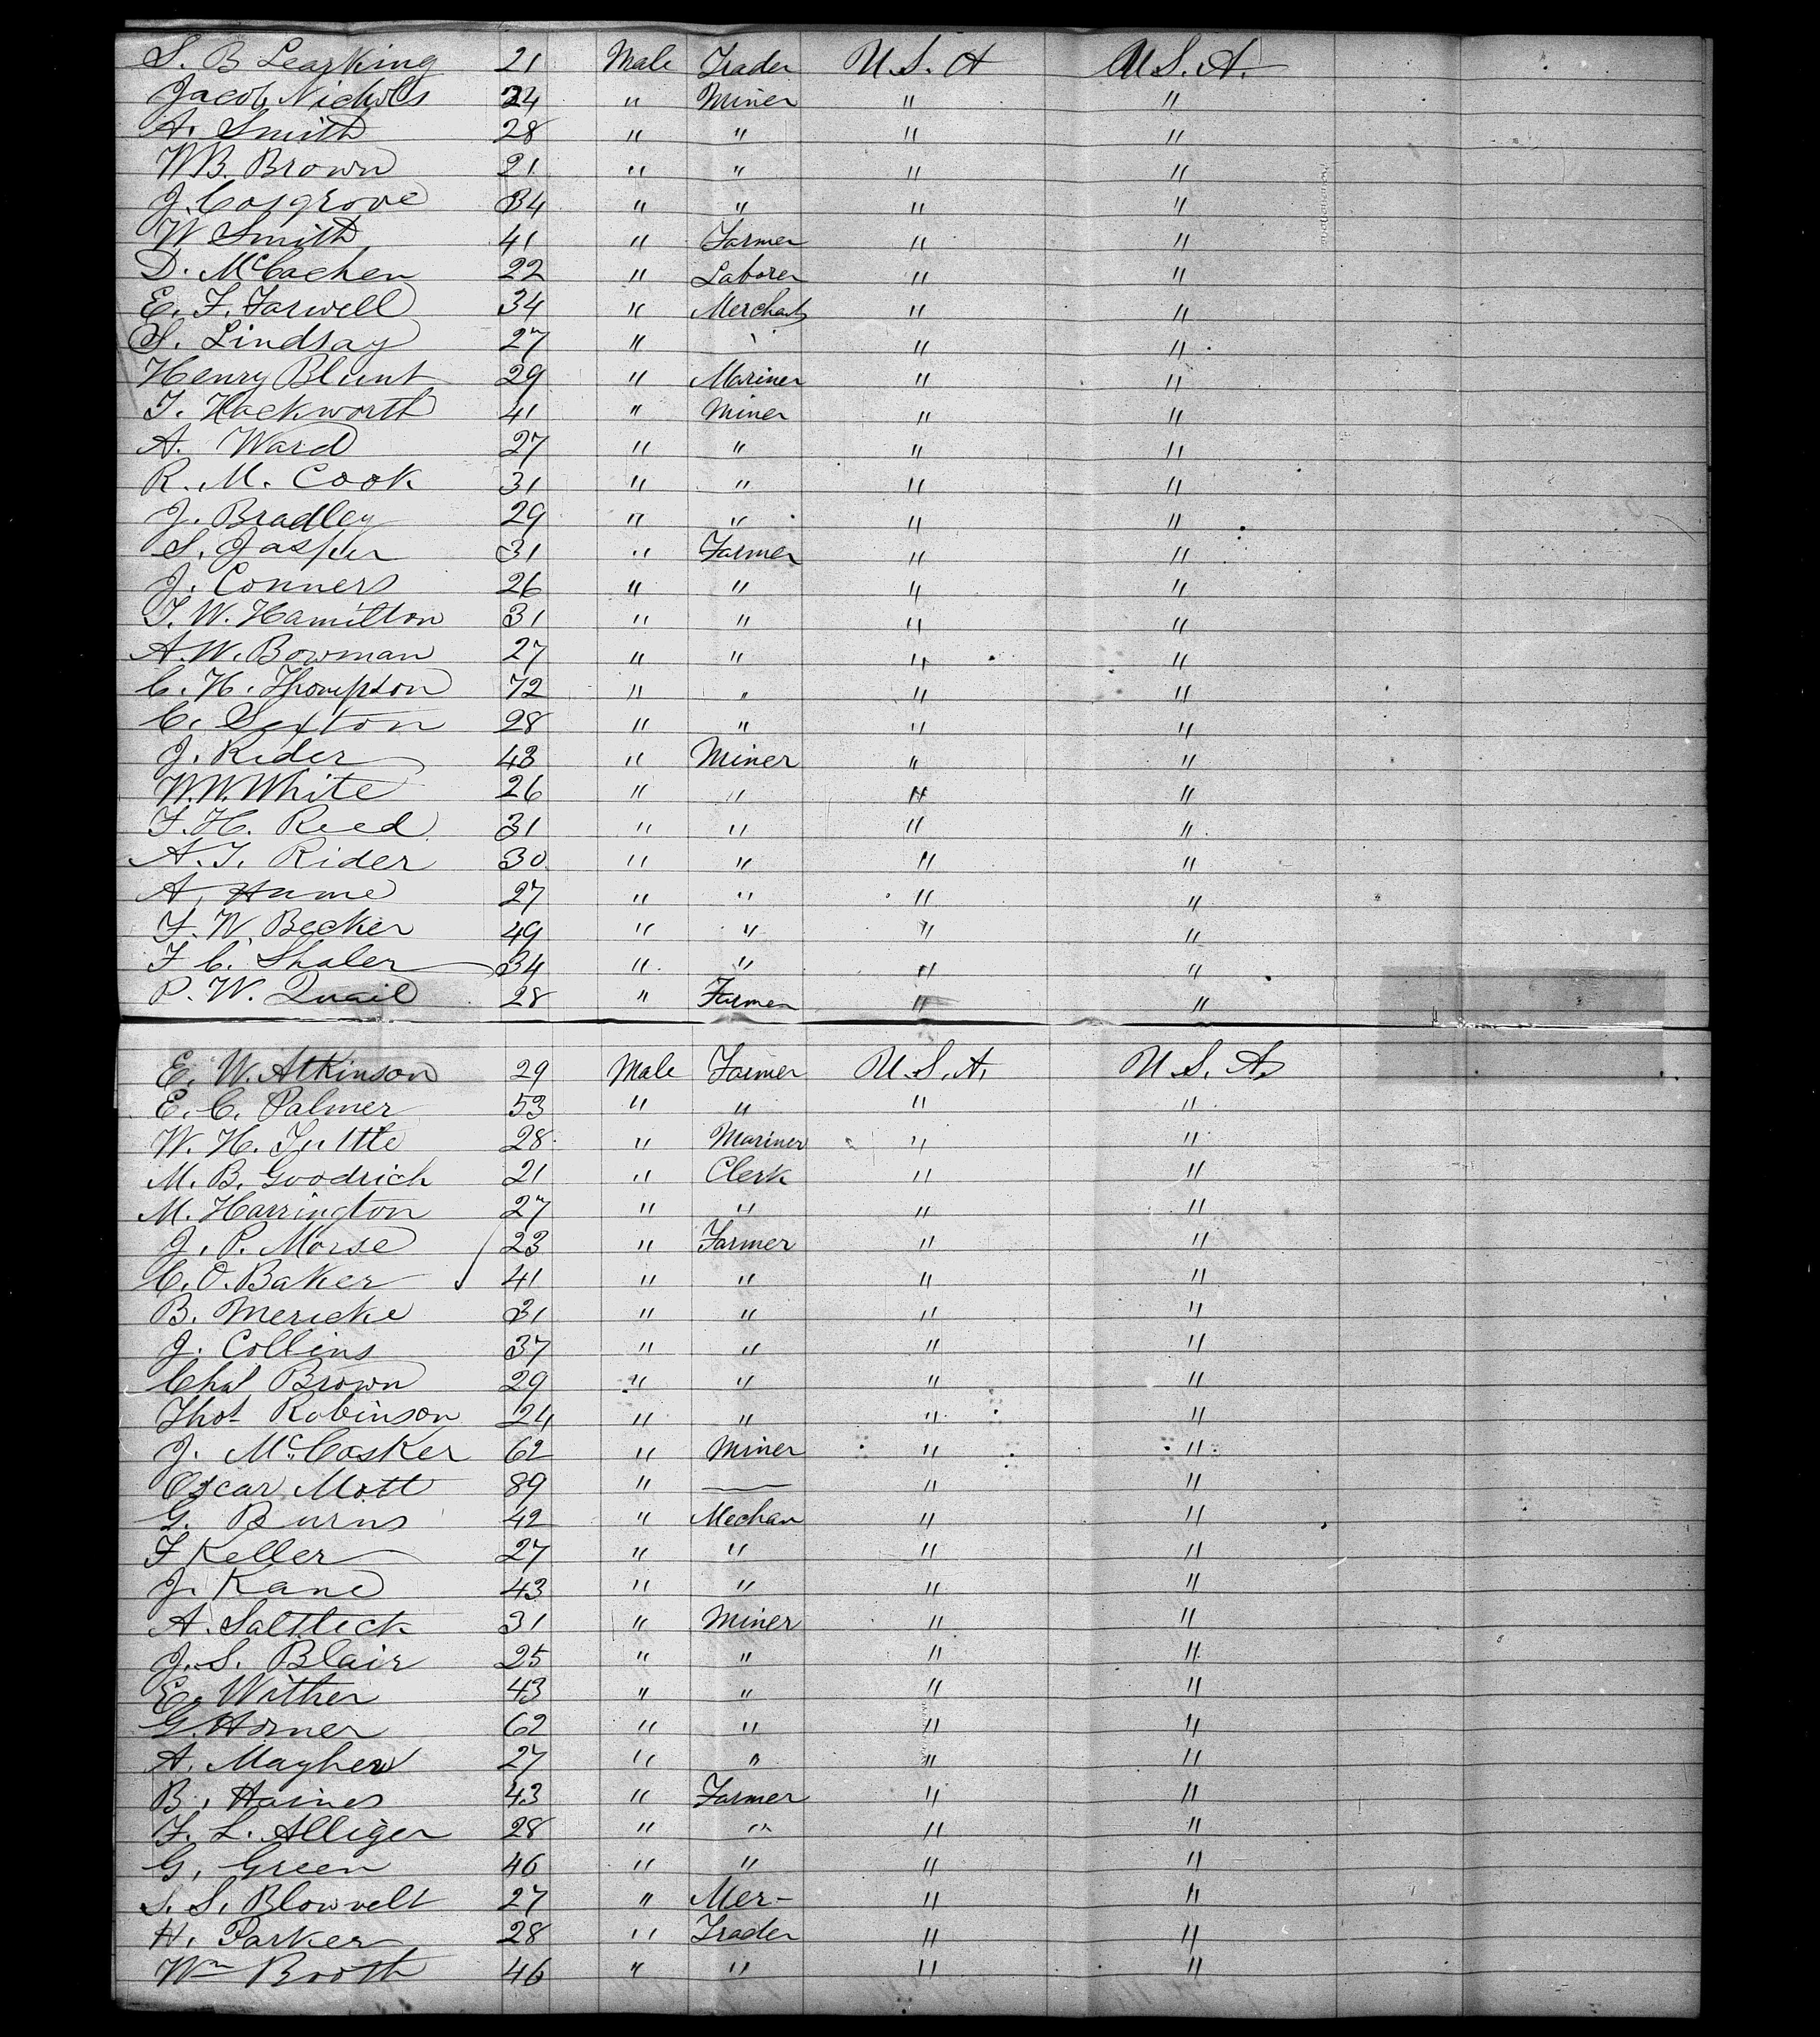 S. B Learking 21 Male Trader U. S. A U. S. A.
Jacob Nichols 24 " Miner " "
A. Smith 28 " " " "
W B. Brown 21 " " " "
J. Cosgrove 34 " " " "
W Smith 41 " Farmer " "
D. McCachen 22 " Laborer " "
E. F. Farwell 34 " Merchant " "
S. Lindsay 27 " " " "
Henry Blunt 29 " Mariner " "
T. Hackworth 41 " Miner " "
A. Ward 27 " " " "
R. M. Cook 31 " " " "
J. Bradley 29 " " " "
S. Jasper 31 " Farmer " "
J. Conners 26 " " " "
T. W. Hamilton 31 " " " "
A. W. Bowman 27 " " " "
C. H. Thompson 72 " " " "
C. Sexton 28 " " " "
J. Rider 43 " Miner " "
W. W. White 26 " " " "
F. H. Reed 31 " " " "
A. T. Rider 30 " " " "
A. Hume 27 " " " "
F. W. Becker 49 " " " "
F C. Shaler 34 " " " "
P. W. Quail 28 " Farmer " "
E. W. Atkinson 29 Male Farmer U. S. A. U. S. A.
E. C. Palmer 53 " " " "
W. H. Tuttle 28 " Mariner " "
M. B. Goodrich 21 " Clerk " "
M. Harrington 27 " " " "
J. P. Morse 23 " Farmer " "
C. O. Baker 41 " " " "
B. Mericke 31 " " " "
J. Collins 37 " " " "
Chas Brown 29 " " " "
Thos Robinson 24 " " " "
J. McCosker 62 " Miner " "
Oscar Mott 89 " — " "
G. Burns 42 " Mechan " "
F Keller 27 " " " "
J. Kane 43 " " " "
A. Saltleck 31 " Miner " "
J. S. Blair 25 " " " "
E. Wither 43 " " " "
G. Horner 62 " " " "
A. Mayhew 27 " " " "
B. Haines 43 " Farmer " "
F. L. Alliger 28 " " " "
G. Green 46 " " " "
S. S. Blowvelt 27 " Mer- " "
H. Parker 28 " Trader " "
Wm Booth 46 " " " "